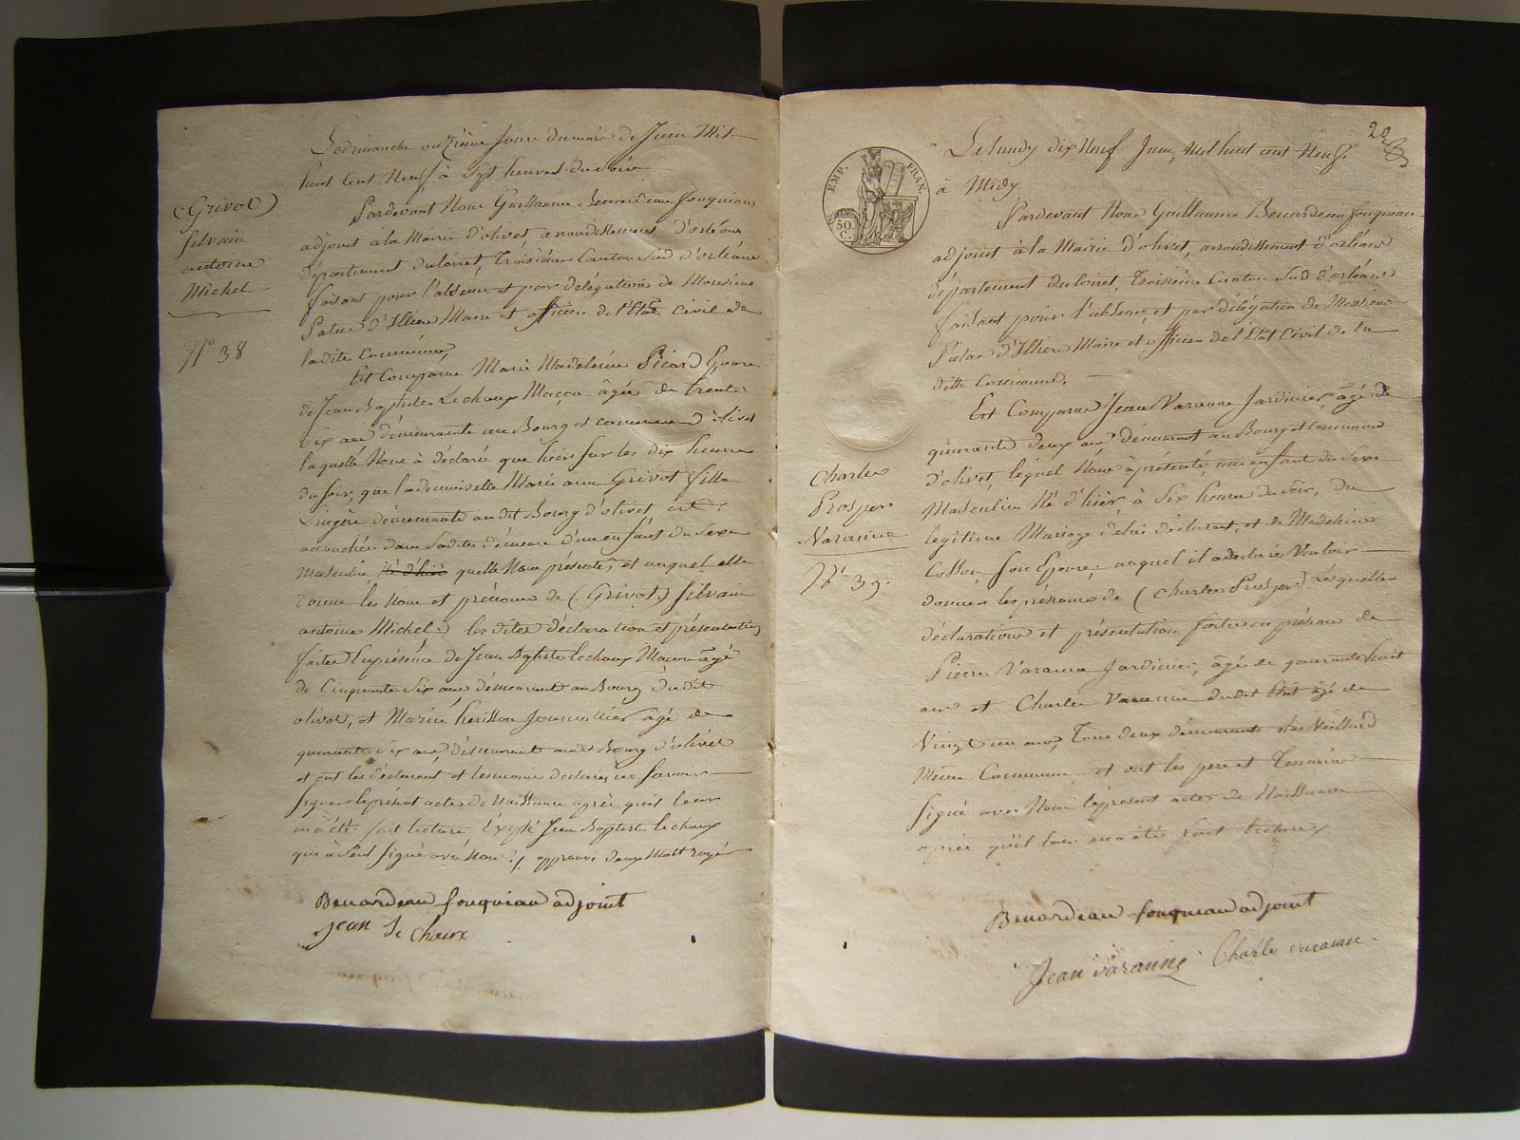 Le dimanche onzième Jour du mois de Juin Mil
huit Cent Neuf à Sept heures du Soir
Pardevant Nous Guillaume Benardeau fouqueau
adjoint à la Mairie d'olivet, arrondissement d'orléans
département du loiret, troisième Canton Sud d'orléans
faisant pour l'absence et par délégation de Monsieur
d'Illiers Maire et officier de l'état civil de
ladite Commune,
Est Comparue Marie Madeleine Picard Epouse
de Jean Baptiste Lechaux Maçon âgée de trente
Six ans demeurante au Bourg et commune d'olivet
laquelle Nous à déclaré que hier sur les dix heures
du soir, que la demoiselle Marie anne Grivot fille
Lingère demeurante audit Bourg d'olivet, est
accouchée dans Sadite demeure d'un enfant du Sexe
Masculin né d'hier quelle Nous présente, et auquel elle
donne les Nom et prénoms de (Grivot) Silvain
antoine Michel) les dites déclaration et présentation
faites En présence de Jean Baptiste lechaux Maçon âgé
de Cinquante Six ans demeurant au Bourg dudit
olivet, et hérisson Journallier âgé de
quarante Six ans, demeurant au Bourg d'olivet
et ont les déclarant et témoins déclaré ne Savoir
Signer le présent acte de Naissance après quil leur
en à été fait lecture Excepté Jean Baptiste lechaux
qui à Seul Signé avec Nous ./. approuvé deux Mots rayé
Benardeau fouqueau adjoint
jean le chaux
Grivot
Silvain
antoine
Michel
N° 38
20
EMP. FRAN.
50
C.
Le lundy dix Neuf Juin, Mil huit cent Neuf.
à Midy
Pardevant Nous Guillaume Benardeau fouqueau
adjoint à la Mairie d'olivet, arrondissement d'orléans
département du loiret, troisième Canton Sud d'orléans
faisant pour l'absence, et par délégation de Monsieur
d'Illiers Maire et officier de l'Etat Civil de la
dite Commune,
Est Comparu Jean Varanne Jardinier, âgé de
quarante deux ans demeurant au Bourg et Commune
d'olivet, lequel Nous à présenté un enfant du Sexe
Masculin Né d'hier, à Six heures du Soir, du
légitime Mariage de lui déclarant, et de Madeleine
Son Epouse, auquel il a déclaré Vouloir
donner les prénoms de (Charles Prosper) Lesquelles
déclarations et présentation faites en présence de
Pierre Varanne Jardinier, âgé de quarante huit
ans et Charles Varanne dudit état âgé de
Vingt un ans, Tous deux demeurant
Même Commune et ont les pere et Temoins
Signé avec Nous le present acte de Naissance
après quil leur en a été fait lecture
Benardeau fouqueau adjoint
Jean varanne Charle varanne
Charles
Prosper
Varanne
N° 39.